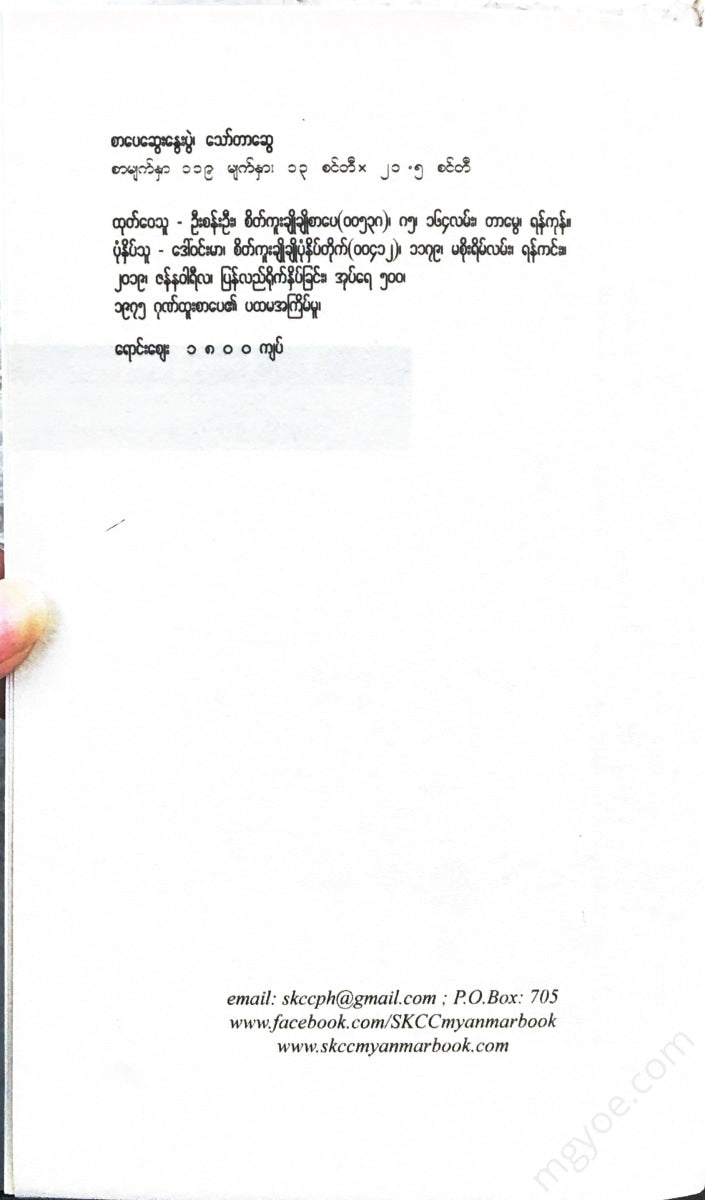 စာပေဆွေးနွေးပွဲ၊ သော်တာဆွေ
စာမျက်နှာ ၁၁၉ မျက်နှာ၊ ၁၃ စင်တီ× ၂၁ .၅ စင်တီ
ထုတ်ဝေသူ - ဦးစန်းဦး၊ စိတ်ကူးချိုချိုစာပေ(၀၀၅၃၈)၊ ဂ၅၊ ၁၆၄လမ်း၊ တာမွေ၊ ရန်ကုန်။
ပုံနှိပ်သူ - ဒေါ်ဝင်းမာ၊ စိတ်ကူးချိုချိုပုံနှိပ်တိုက်(၀၀၄၁၂)၊ ၁၁၇၉၊ မစိုးရိမ်လမ်း၊ ရန်ကင်း။
၂၀၁၉၊ ဇန်နဝါရီလ၊ ပြန်လည်ရိုက်နှိပ်ခြင်း၊ အုပ်ရေ ၅၀၀၊
၁၉၇၅ ဂုဏ်ထူးစာပေ၏ ပထမအကြိမ်မူ၊
ရောင်းဈေး ၁ ၈ ၀ ၀ ကျပ်
email: skccph@gmail.com ; P.O.Box: 705
www.facebook.com/SKCCmyanmarbook
www.skccmyanmarbook.com
mgyoe.com